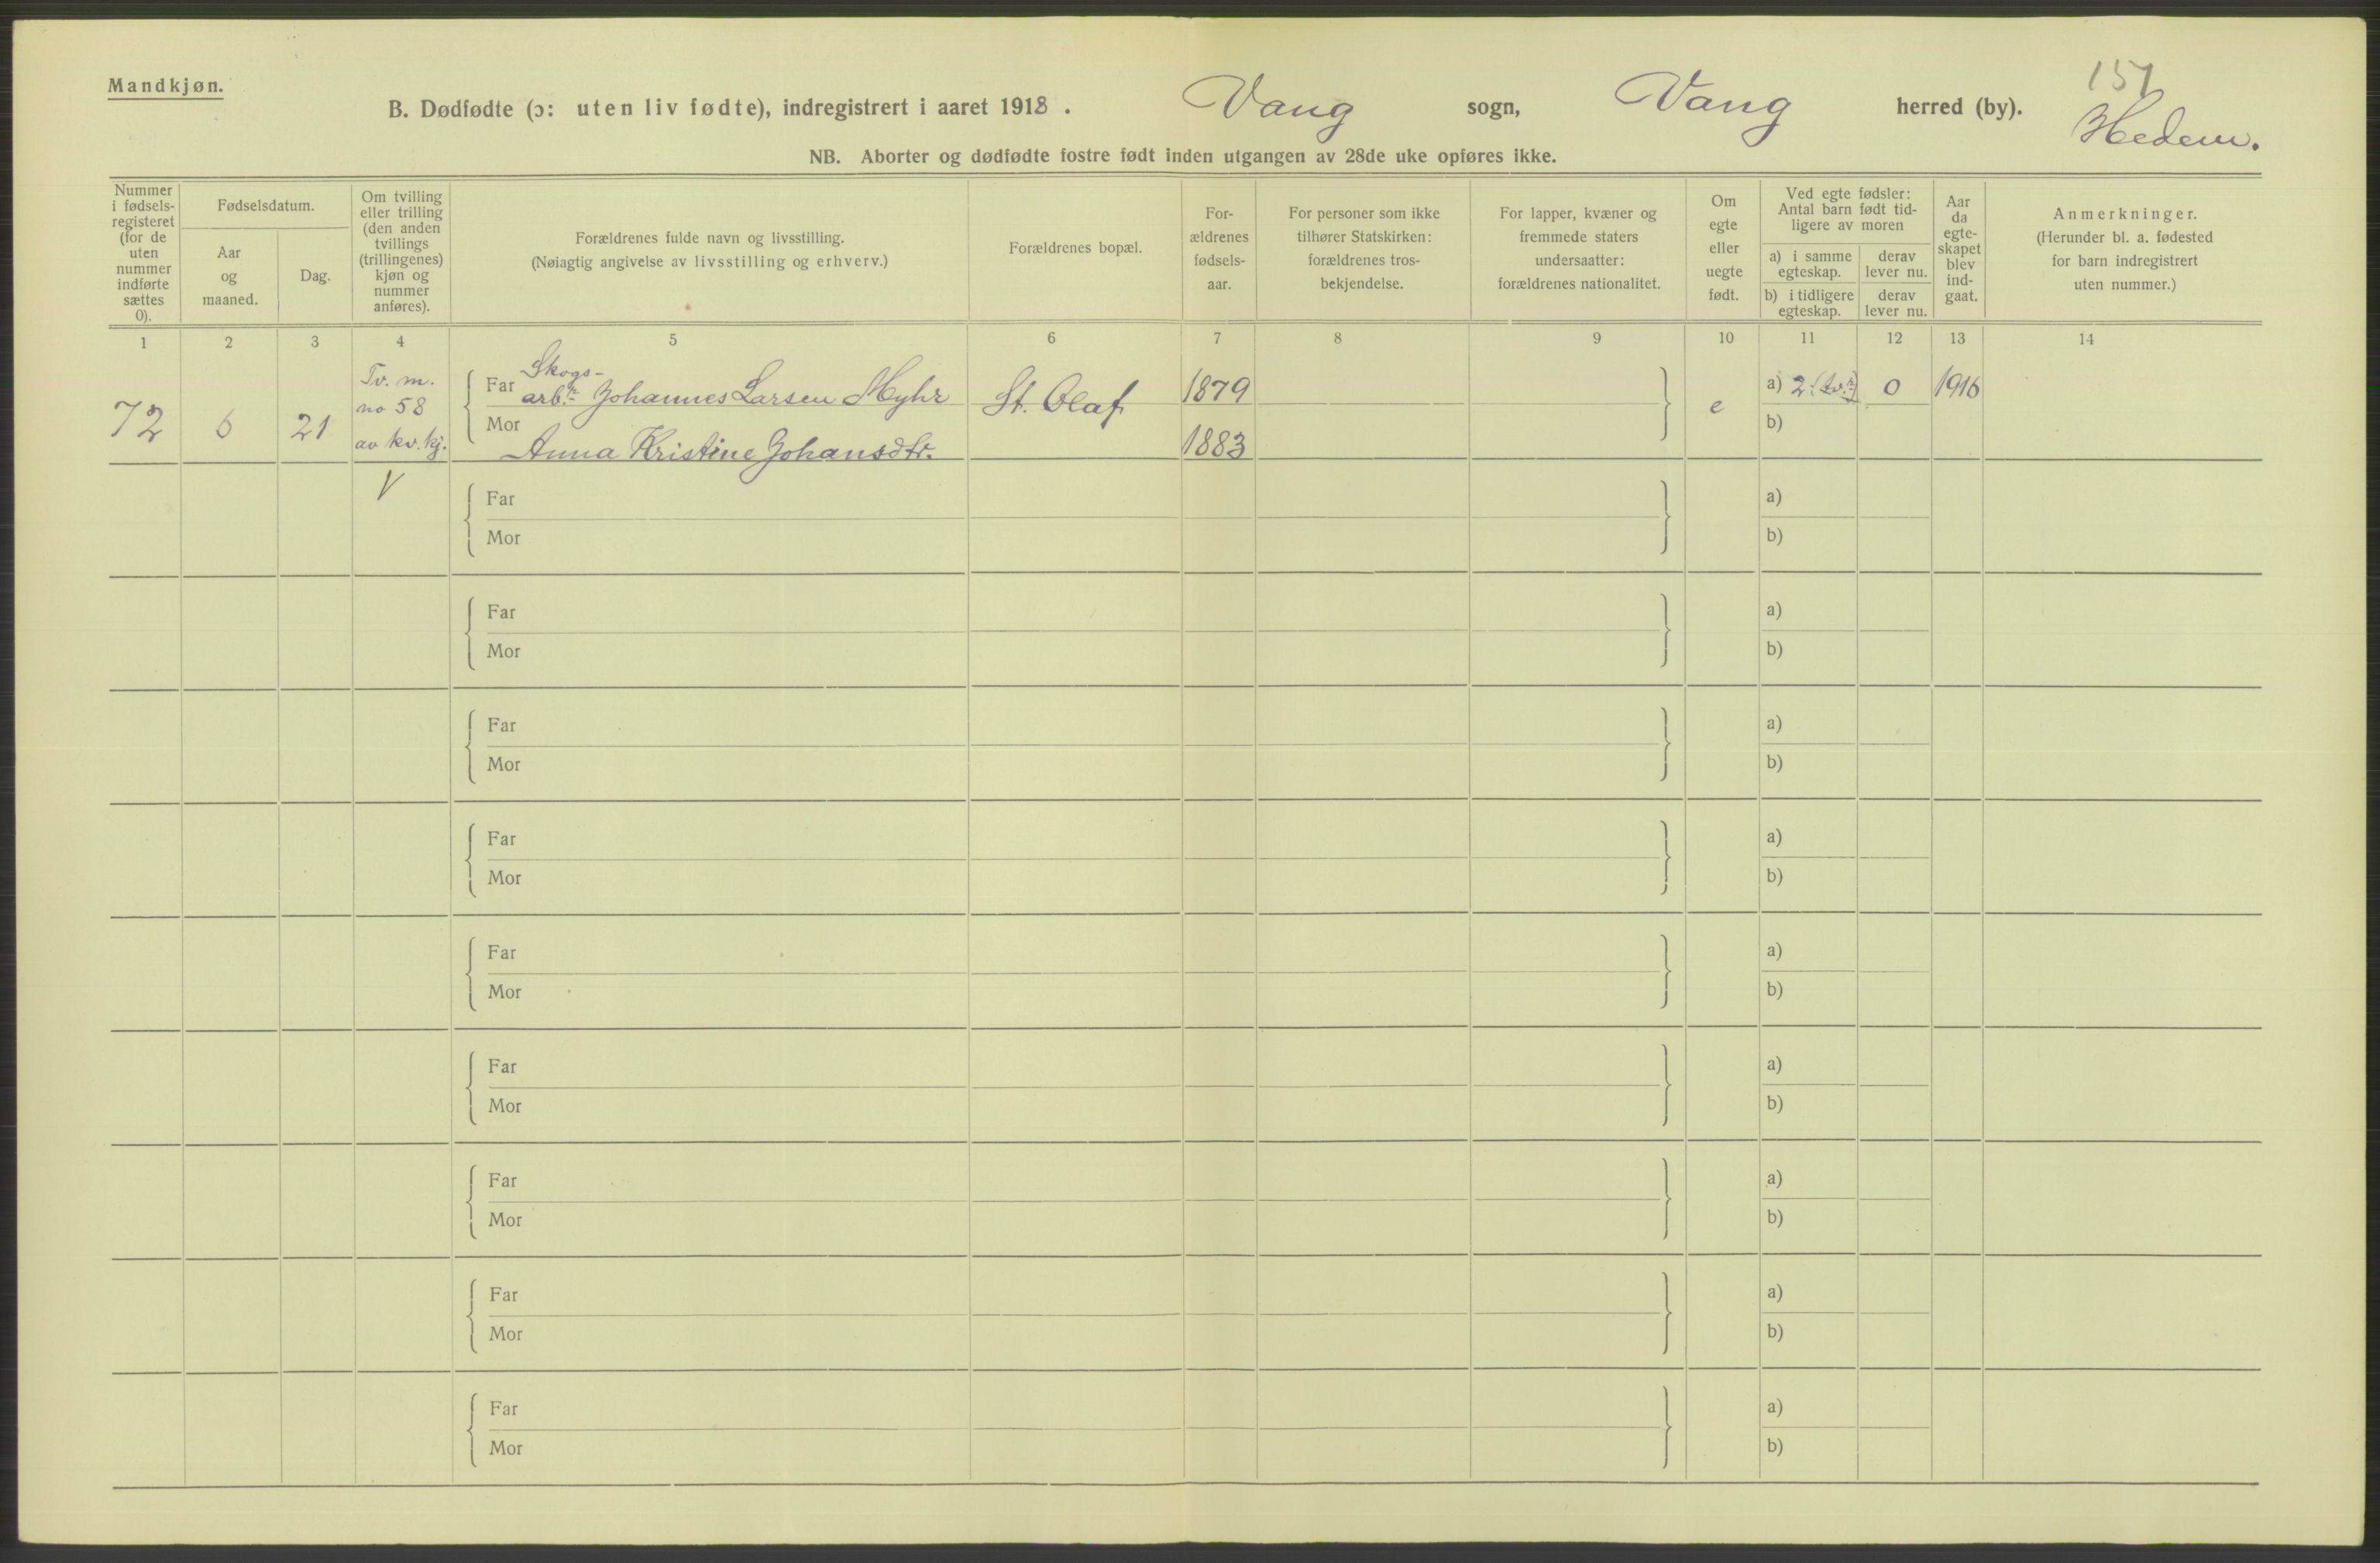 Mandkjøn.
151
B. Dødfødte (ɔ: uten liv fødte), indregistrert i aaret 1918. Vang sogn, Vang herred (by).
Hedem.
NB. Aborter og dødfødte fostre født inden utgangen av 28de uke opføres ikke.
Nummer
i fødsels-
registeret
(for de
uten
nummer
indførte
sættes
0).
Fødselsdatum.
Aar
og
maaned.
Dag.
Om tvilling
eller trilling
(den anden
tvillings
(trillingenes)
kjøn og
nummer
anføres).
Forældrenes fulde navn og livsstilling.
(Nøiagtig angivelse av livsstilling og erhverv.)
Forældrenes bopæl.
For-
ældrenes
fødsels-
aar.
For personer som ikke
tilhører Statskirken:
forældrenes tros-
bekjendelse.
For lapper, kvæner og
fremmede staters
undersaatter:
forældrenes nationalitet.
Om
egte
eller
uegte
født.
Ved egte fødsler:
Antal barn født tid-
ligere av moren
a) i samme
egteskap.
derav
lever nu.
b) i tidligere
egteskap.
derav
lever nu.
Aar
da
egte-
skapet
blev
ind-
gaat.
Anmerkninger.
(Herunder bl. a. fødested
for barn indregistrert
uten nummer.)
1 2 3 4 5 6 7 8 9 10 11 12 13 14
72
6
21
Tv. m.
no 58
av kv. kj.
Skogs-
Far arb.r Johannes Larsen Myhr
Mor
Anna Kristine Johansdtr.
St. Olaf
1879
1883
e
a) 2 (tv.r)
b)
0
1916
V
Far
Mor
a)
b)
Far
Mor
a)
b)
Far
Mor
a)
b)
Far
Mor
a)
b)
Far
Mor
a)
b)
Far
Mor
a)
b)
Far
Mor
a)
b)
Far
Mor
a)
b)
Far
Mor
a)
b)